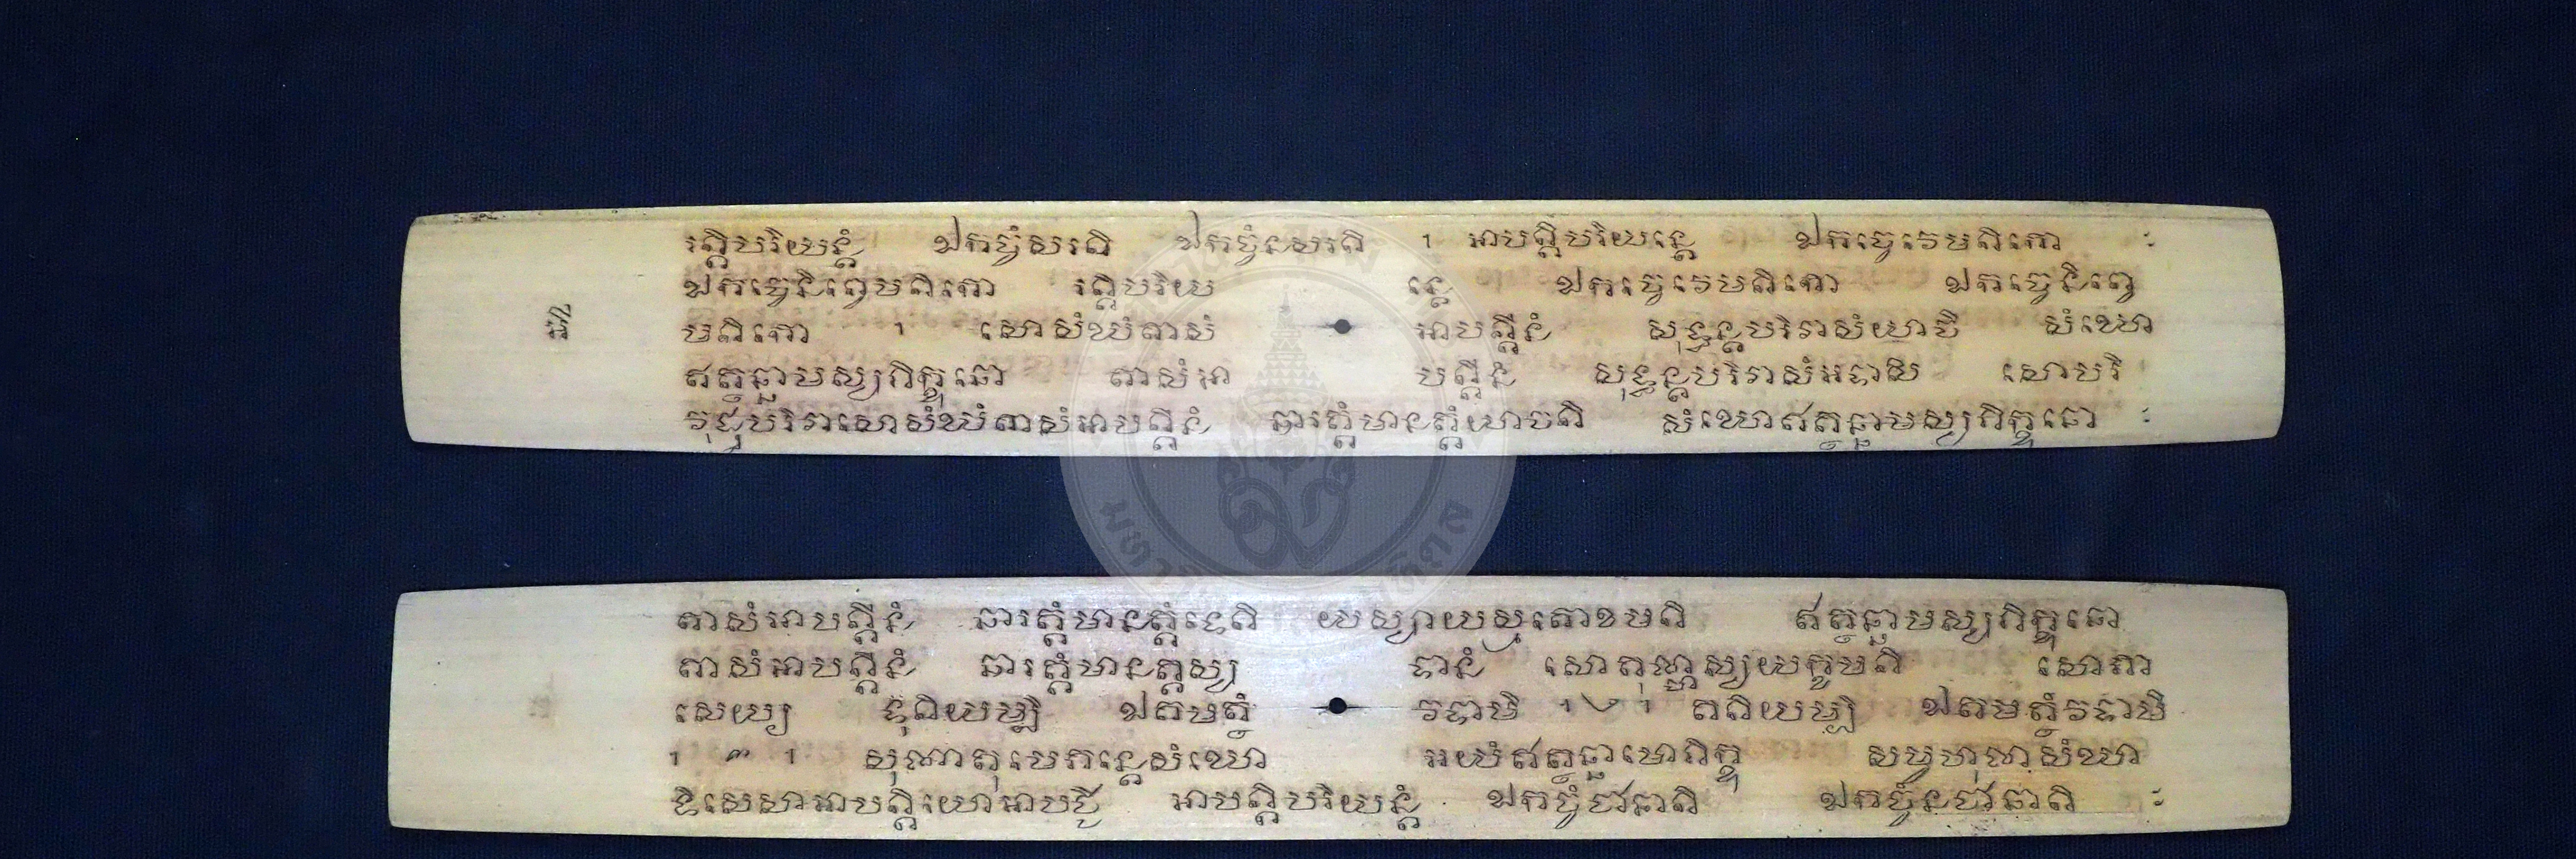 រត្តិបរិយន្តំ ឯកច្ចំសរតិ ឯកច្ចំនសរតិ ១ អាបត្តិបរិយន្តេ ឯកច្ចេវេមតិកោ ៈ
ឯកច្ចេនិព្ពេមតិកោ រត្តិបរិយ ន្តេ ឯកច្ចេវេមតិកោ ឯកច្ចេនិព្ពេ
មតិកោ ១ សោសំឃំតាសំ អាបត្តីនំ សុទ្ធន្តបរិវាសំយាចិ សំឃោ
ឥត្ថន្នាមស្សភិក្ខុនោ តាសំអា បត្តីនំ សុទ្ធន្តបរិវាសំអទាសិ សោបរិ
វុដ្ឋបរិវាសោសំឃំតាសំអាបត្តីនំ ឆារត្តំមានត្តំយាចតិ សំឃោឥត្ថន្នាមស្សភិក្ខុនោ ៈ
តាសំអាបត្តីនំ ឆារត្តំមានត្តំទេតិ យស្សាយស្មតោខមតិ ឥត្ថន្នាមស្សភិក្ខុនោ
តាសំអាបត្តីនំ ឆារត្តំមានត្តស្ស ទានំ សោតុណ្ហស្សយក្ខមតិ សោភា
សេយ្យ ទុតិយម្បិ ឯតមត្ថំ វទាមិ ១ ២ ១ តតិយម្បិ ឯតមត្ថំវទាមិ
១ ៣ ១ សុណាតុមេភន្តេសំឃោ អយំឥត្ថន្នាមោភិក្ខុ សម្ពហុលាសំឃា
ទិសេសាអាបត្តិយោអាបជ្ជិ អាបត្តិបរិយន្តំ ឯកច្ចំជានាតិ ឯកច្ចំនជានាតិ ៈ